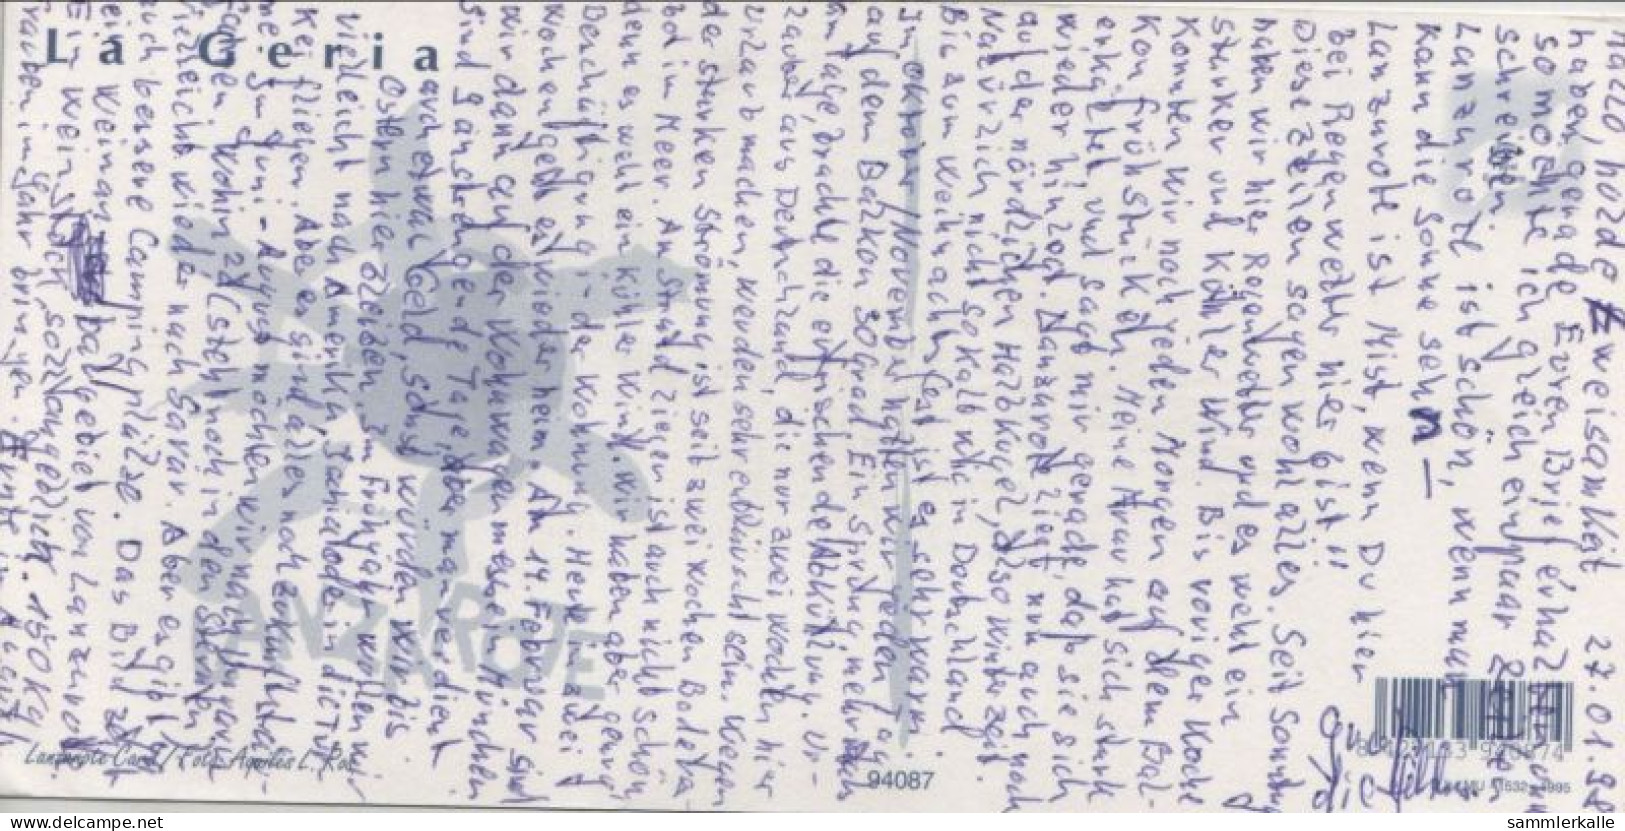 La Geria
Hallo, holde Zweisamkeit 27.01.98
haben gerade Euren Brief erhalten und
so möchte ich gleich ein paar Zeilen
schreiben.
Lanzarote ist schön, wenn man
kann die Sonne sehn –
Lanzarote ist Mist, wenn Du hier
bei Regenwetter hier bist!!
Diese Zeilen sagen wohl alles. Seit Sonntag
haben wir hier Regenwetter und es weht ein
starker und kühler Wind. Bis voriger Woche
konnten wir noch jeden Morgen auf dem Bal-
kon frühstücken. Meine Frau hat sich stark
erkältet, und sagt mir gerade, daß sie sich
wieder hinzogt. Lanzarote liegt nun auch noch
auf der nördlichen Halbkugel, also Winterzeit.
Natürlich nicht so kalt wie in Deutschland.
Bis zum Weihnachtsfest ist es sehr warm.
Im Oktober/November hatten wir jeden Tag
auf dem Balkon 50 Grad. Ein Sprung mehrmals
am Tage, brachte die erfrischende Abkühlung. Ur-
lauber aus Deutschland, die nur zwei Wochen hier
Urlaub machen, werden sehr enttäuscht sein. Wegen
der starken Strömung ist seit zwei Wochen Badever-
bot im Meer. Am Strand liegen ist auch nicht schön,
denn es weht ein kühler Wind. Wir haben aber genug
Beschäftigung in der Wohnung. Heute in zwei
Wochen geht es wieder heim. Am 14. Februar sind
wir dann auf der Wohnwagenmesse in München
sind anstrengende Tage, aber man verdient
auch etwas Geld, sonst würden wir bis
Ostern hier bleiben. Im Frühjahr wollen wir
vielleicht nach Amerika, Jamaika oder in die Tür-
kei fliegen. Aber es sind alles noch Zukunftsträu-
me. Im Juni-August möchten wir nach Ungarn
fahren. Wohin?? (steht noch in den Sternen)
Vielleicht wieder nach Sarvar. Aber es gibt
auch bessere Campingplätze. Das Bild zeigt
ein Weinanbaugebiet von Lanzarote
Ein Weinstock soll ungefähr 150 kg
Trauben im Jahr bringen. Ernte im August
LANZAROTE
Lanzarote Card / Foto Aquiles L. Ros
94087